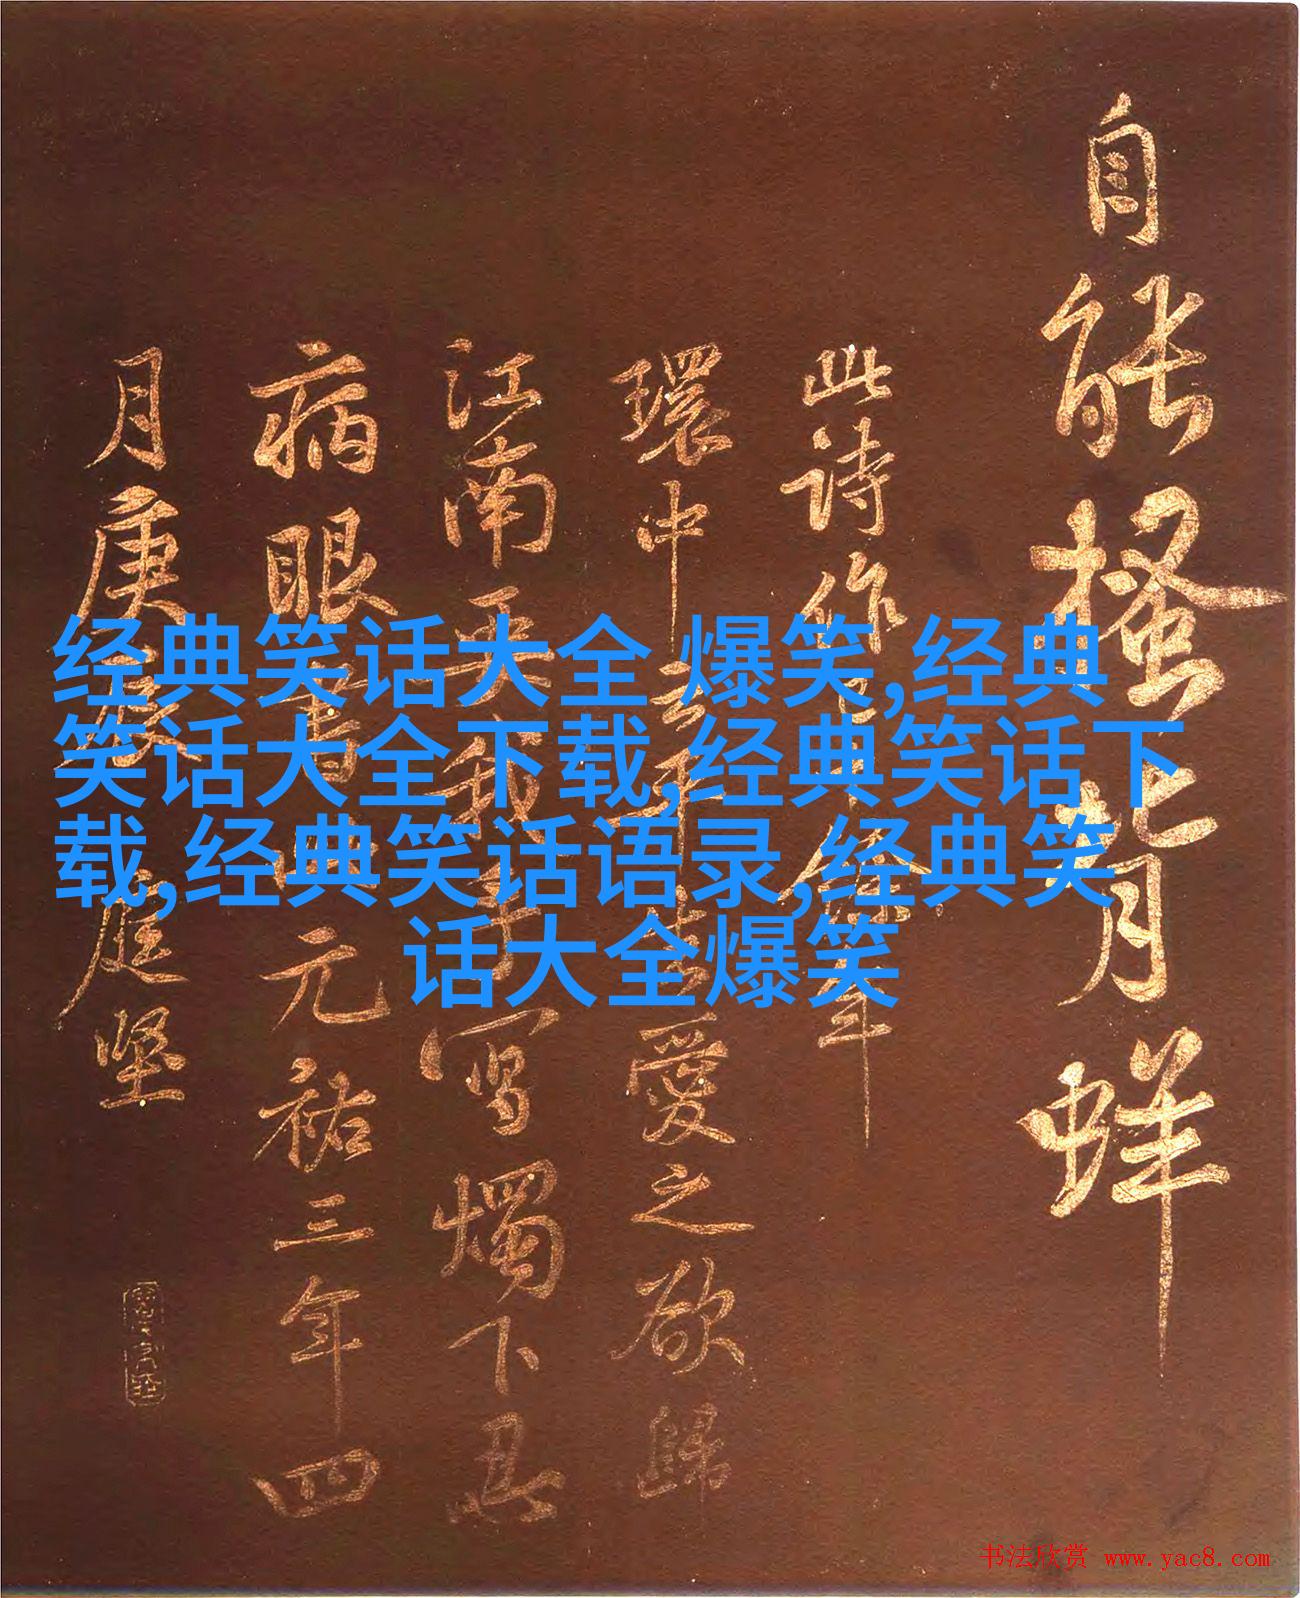 自能搔背蛘
此诗作
年
環中去年
愛之欲歸
江南
寫燭下忍
病眼書
元祐三年四
月庚
庭堅
经典笑话大全 爆笑,经典
笑话大全下载,经典笑话下
载,经典笑话语录,经典笑
话大全爆笑
书法欣赏 www.yac8.com